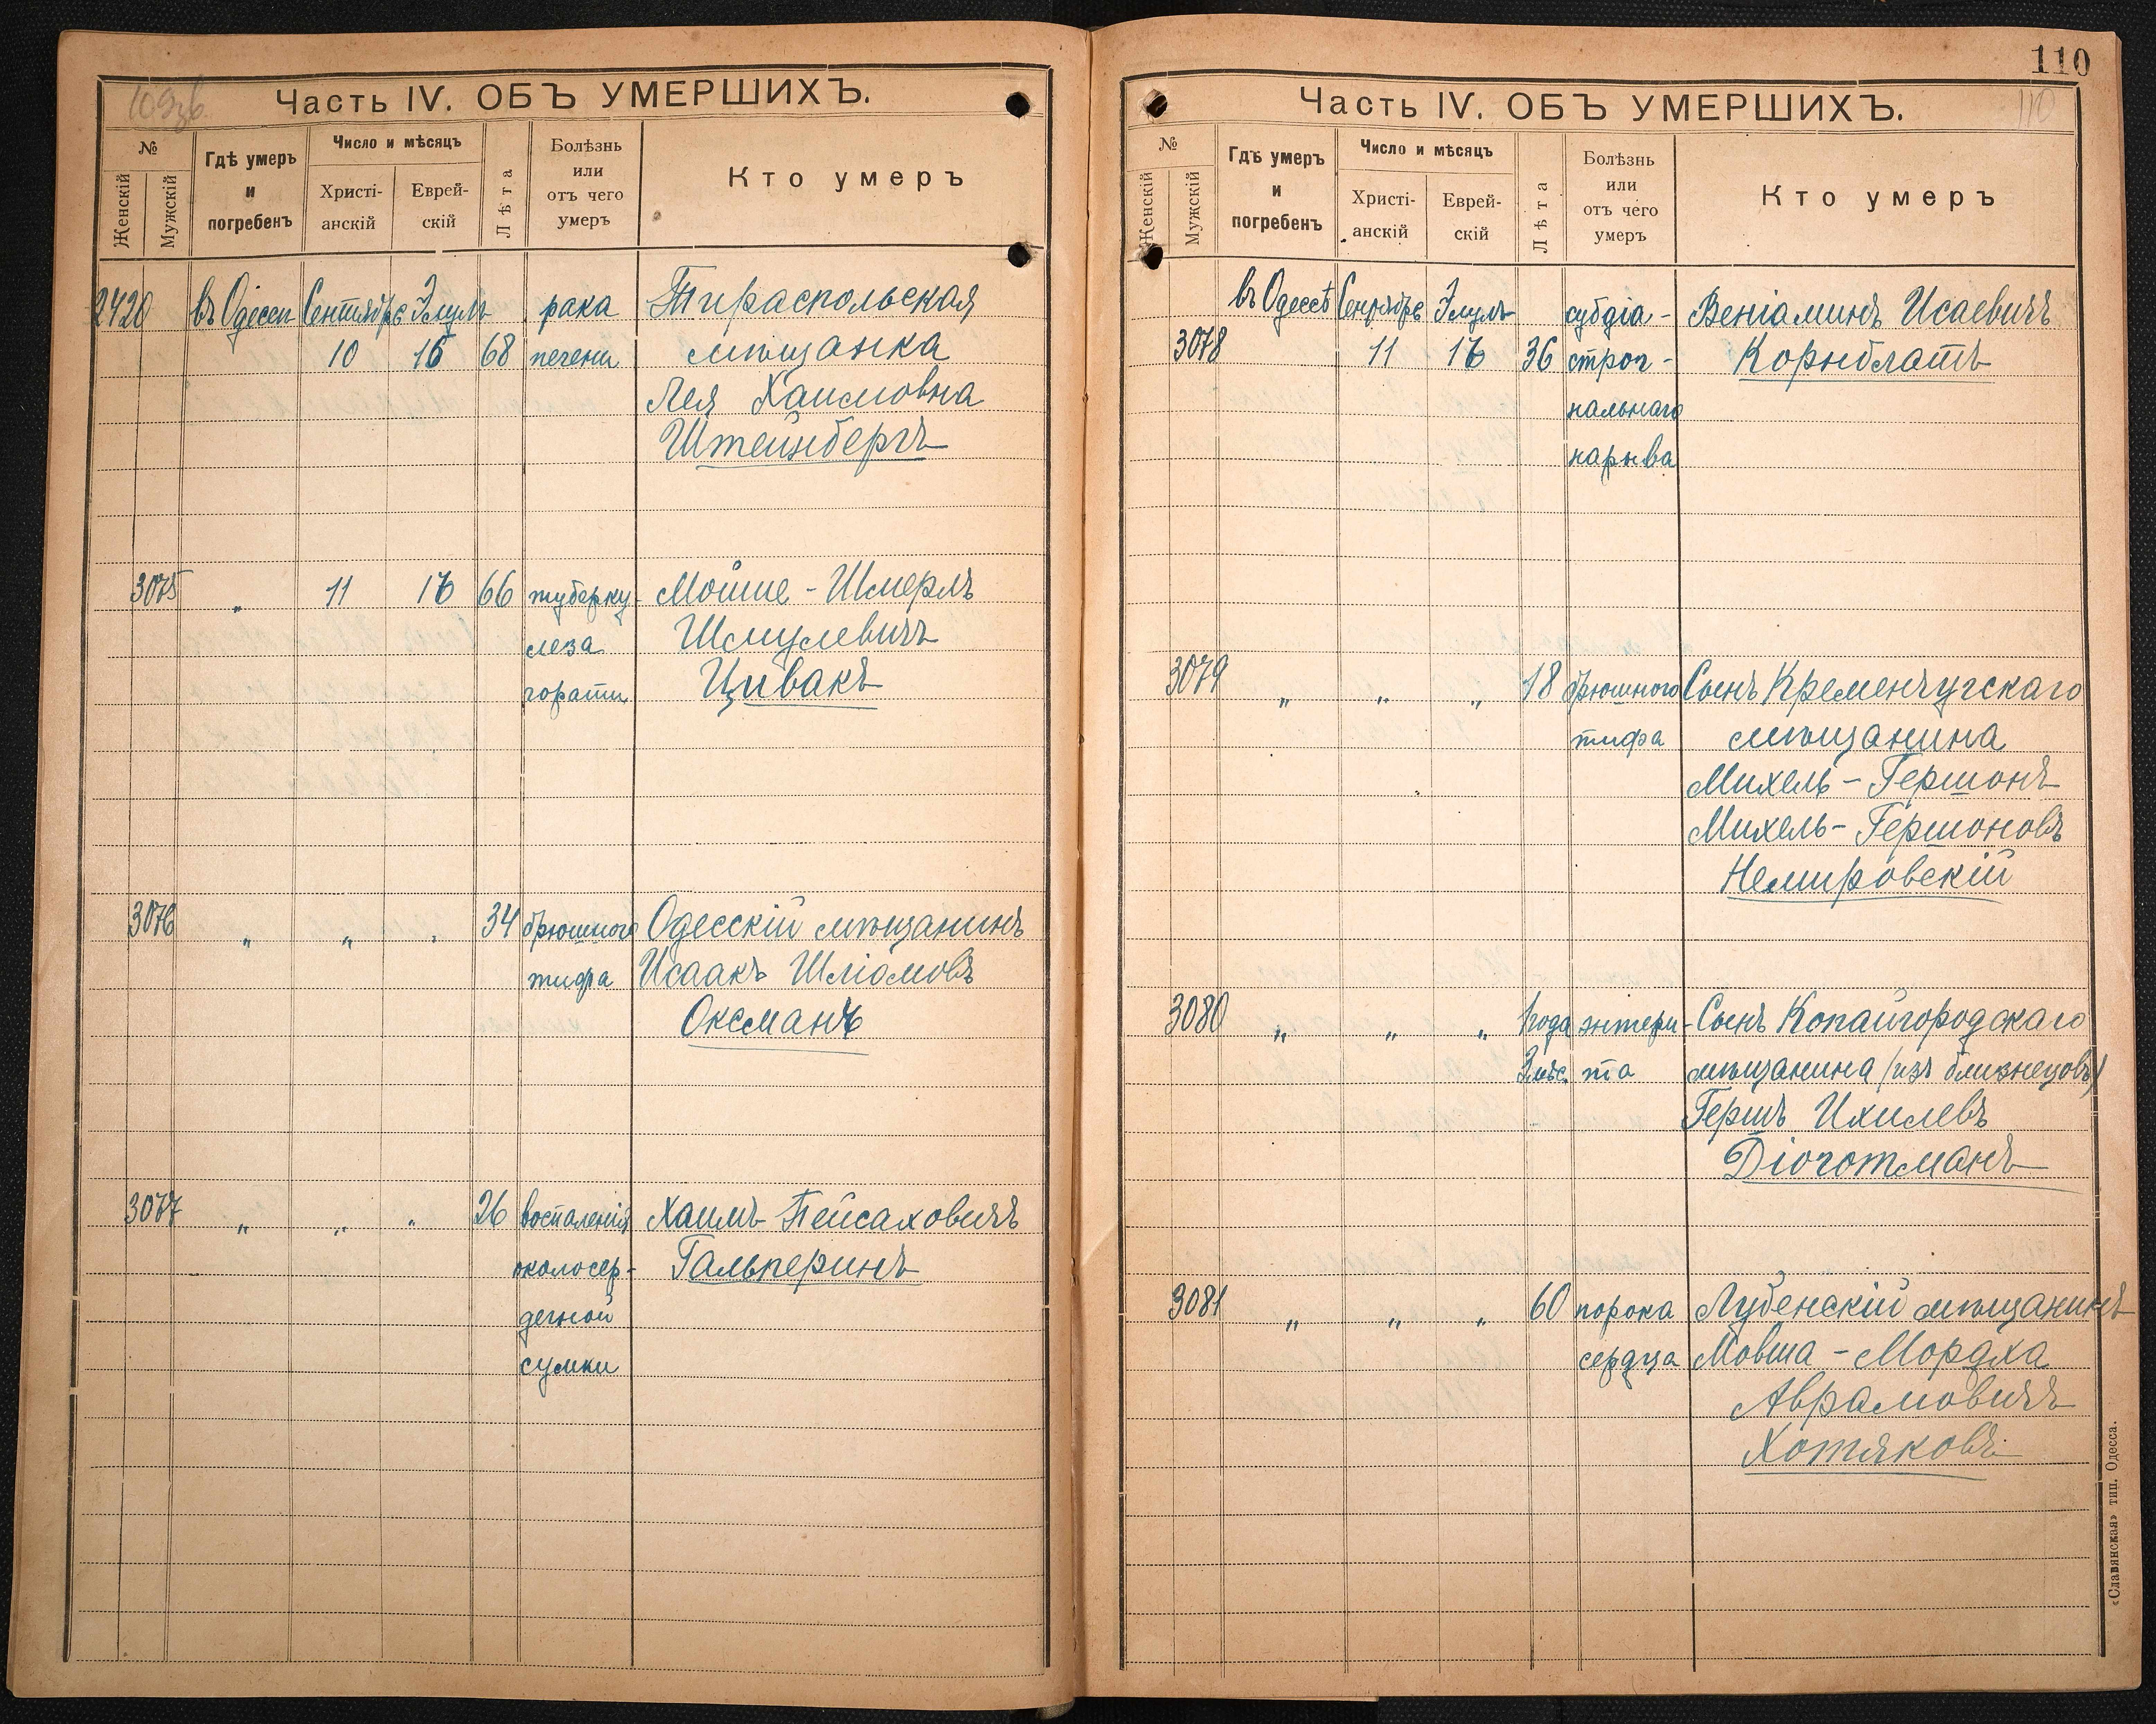 109зв
Часть IV. ОБЪ УМЕРШИХЪ.
№
Женскій
Мужскій
Гдѣ умеръ
и
погребенъ
Число и мѣсяцъ
Христі-
анскій
Еврей-
скій
Лѣта
Болѣзнь
или
отъ чего
умеръ
Кто умеръ
2420 въ Одессѣ Сентябрь Элулъ рака Тираспольская
10 16 68 печени мѣщанка
Лея Хаимовна
Штейнбергъ
3075 " 11 17 66 туберку- Мойше-Шмерлъ
леза Шмулевичъ
гортани Цивакъ
3076 " " " 34 брюшного Одесскій мѣщанинъ
тифа Исаакъ Шліомовъ
Оксманъ
3077 " " " 26 воспаленія Хаимъ Пейсаховичъ
околосер- Гальперинъ
дечной
сумки
110
Часть IV. ОБЪ УМЕРШИХЪ.
110
№
Женскій
Мужскій
Гдѣ умеръ
и
погребенъ
Число и мѣсяцъ
Христі-
анскій
Еврей-
скій
Лѣта
Болѣзнь
или
отъ чего
умеръ
Кто умеръ
въ Одессѣ Сентябрь Элулъ субдіа- Веніаминъ Исаевичъ
3078 11 17 36 строг- Корнблатъ
нальнаго
нарыва
3079 " " " 18 брюшного Сынъ Кременчугскаго
тифа мѣщанина
Михель-Гершонъ
Михель-Гершоновъ
Немировскій
3080 " " " 1 года энтери- Сынъ Копайгородскаго
3 мѣс. та мѣщанина (изъ близнецовъ)
Гершъ Ихилевъ
Діоготманъ
3081 " " " 60 порока Лубенскій мѣщанинъ
сердца Мовша-Мордха
Аврамовичъ
Хотяковъ
«Славянская» тип. Одесса.